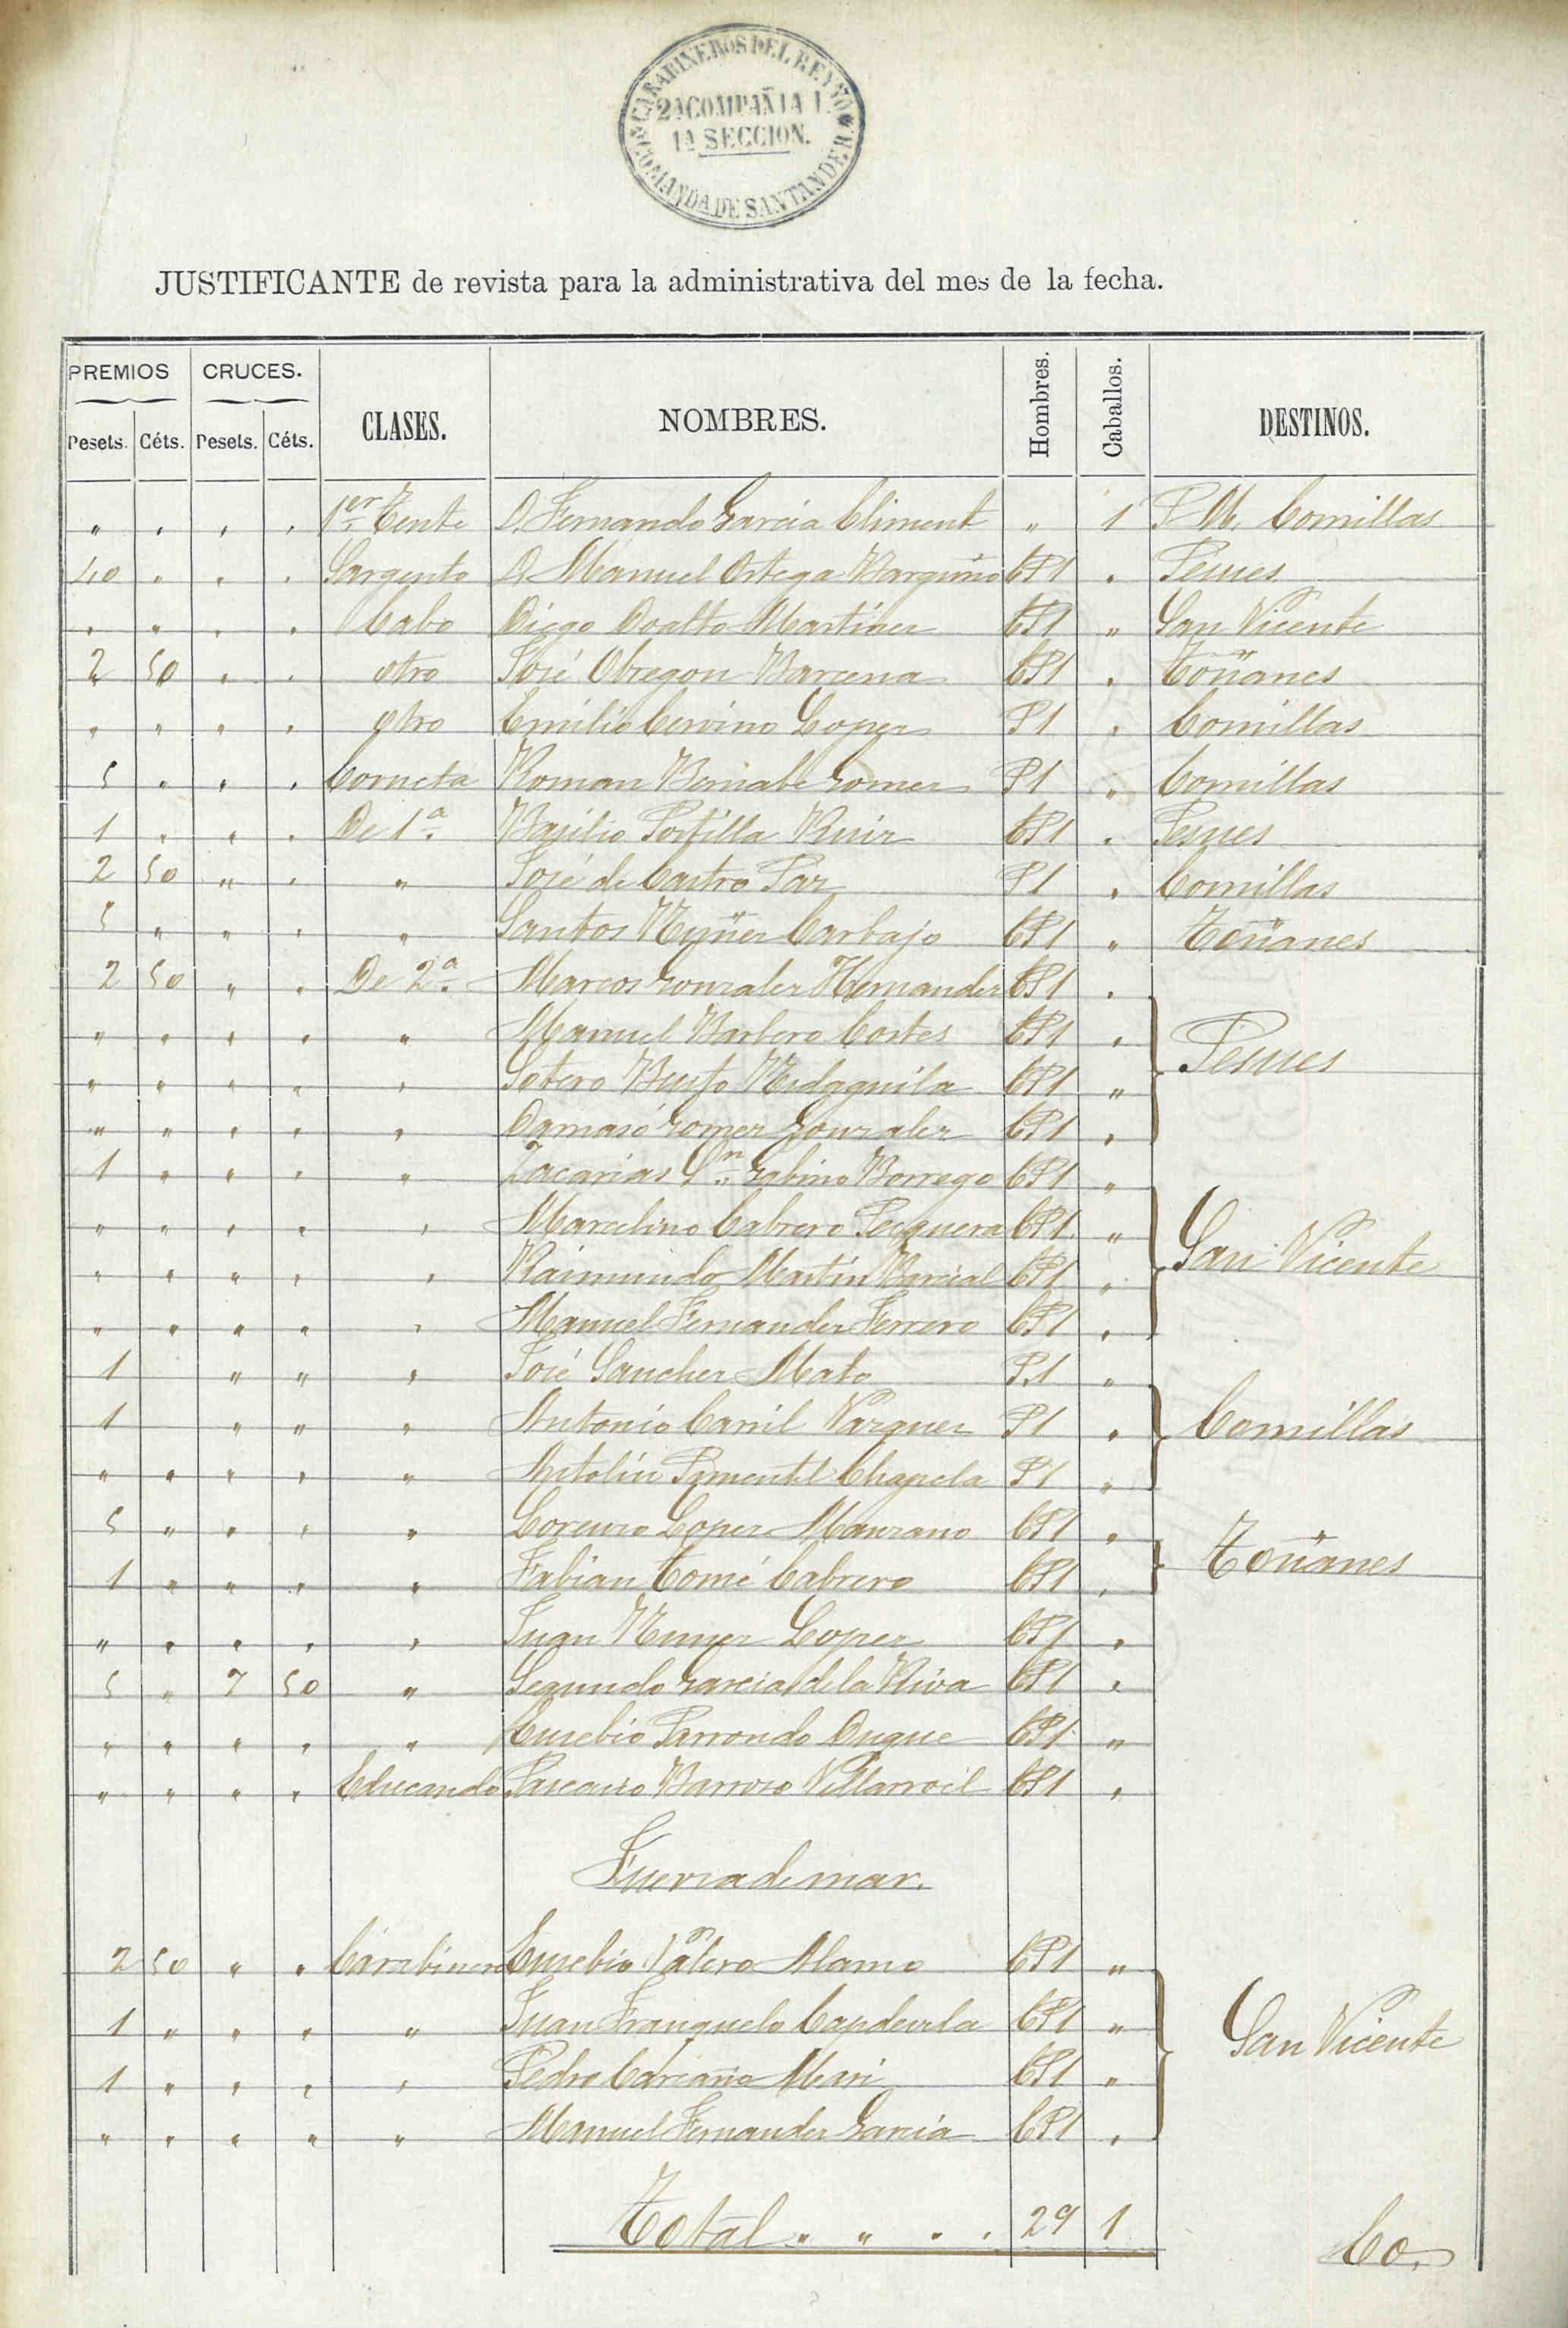 CARABINEROS DEL REYNO
2ª COMPAÑIA
1ª SECCION.
COMANDA DE SANTANDER
JUSTIFICANTE de revista para la administrativa del mes de la fecha.
PREMIOS CRUCES. CLASES. NOMBRES. Hombres. Caballos. DESTINOS.
Pesets. Céts. Pesets. Céts.
" " " " 1er Tente D. Fernando Garcia Climent " 1 P. M. Comillas
40 " " " Sargento D. Manuel Ortega CP1 " Pesues
" " " " Cabo Diego Martinez CP1 " San Vicente
2 50 " " otro José Obregon Barcena CP1 " Toñanes
" " " " otro Emilio Cervino Lopez P1 " Comillas
5 " " " Corneta Roman Bernabe Gomez P1 " Comillas
1 " " " De 1ª Basilio Portilla Ruiz CP1 " Pesues
2 50 " " " José de Castro Paz P1 " Comillas
5 " " " " Santos Carbajo CP1 " Toñanes
2 50 " " De 2ª Marcos Gonzalez Hernandez CP1 "
" " " " " Manuel Barbero Cortes CP1 " Pesues
" " " " " Sotero CP1 "
" " " " " Damaso Gomez Gonzalez CP1 "
1 " " " " Zacarias Sn Gabino Borrego CP1 "
" " " " " Marcelino Cabrero CP1 "
" " " " " Raimundo Martin Marcial CP1 " San Vicente
" " " " " Manuel Fernandez Ferrero CP1 "
1 " " " José Sanchez Mato P1 "
1 " " " Antonio Carril Vazquez P1 " Comillas
" " " " " Antolin Pimentel Chapela P1 "
5 " " " " Lorenzo Lopez Manzano CP1 "
1 " " " " Fabian Tomé Cabrero CP1 " Toñanes
" " " " " Juan Lopez CP1 "
5 " 7 50 " Segundo Garcia de la Riva CP1 "
" " " " " Eusebio Parrondo Duque CP1 "
" " " " Educando Pascasio Barroso Villarroel CP1 "
Fuerza de mar.
2 50 " " Carabinero Eusebio Valero Alamo CP1 "
1 " " " " Juan Franquelo Capdevila CP1 "
San Vicente
1 " " " " Pedro Mari CP1 "
" " " " " Manuel Fernandez Garcia CP1 "
Total " " " " 29 1
Co.